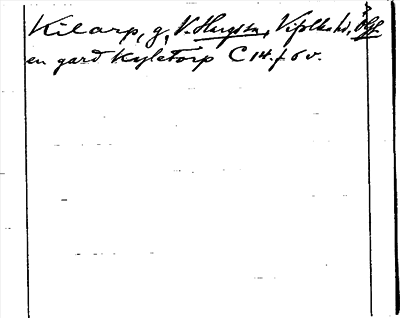 Kilarp, g, V. Hugsta, Vifolka hd, Ög.
en gard Kyletorp C 14. f 6 v.